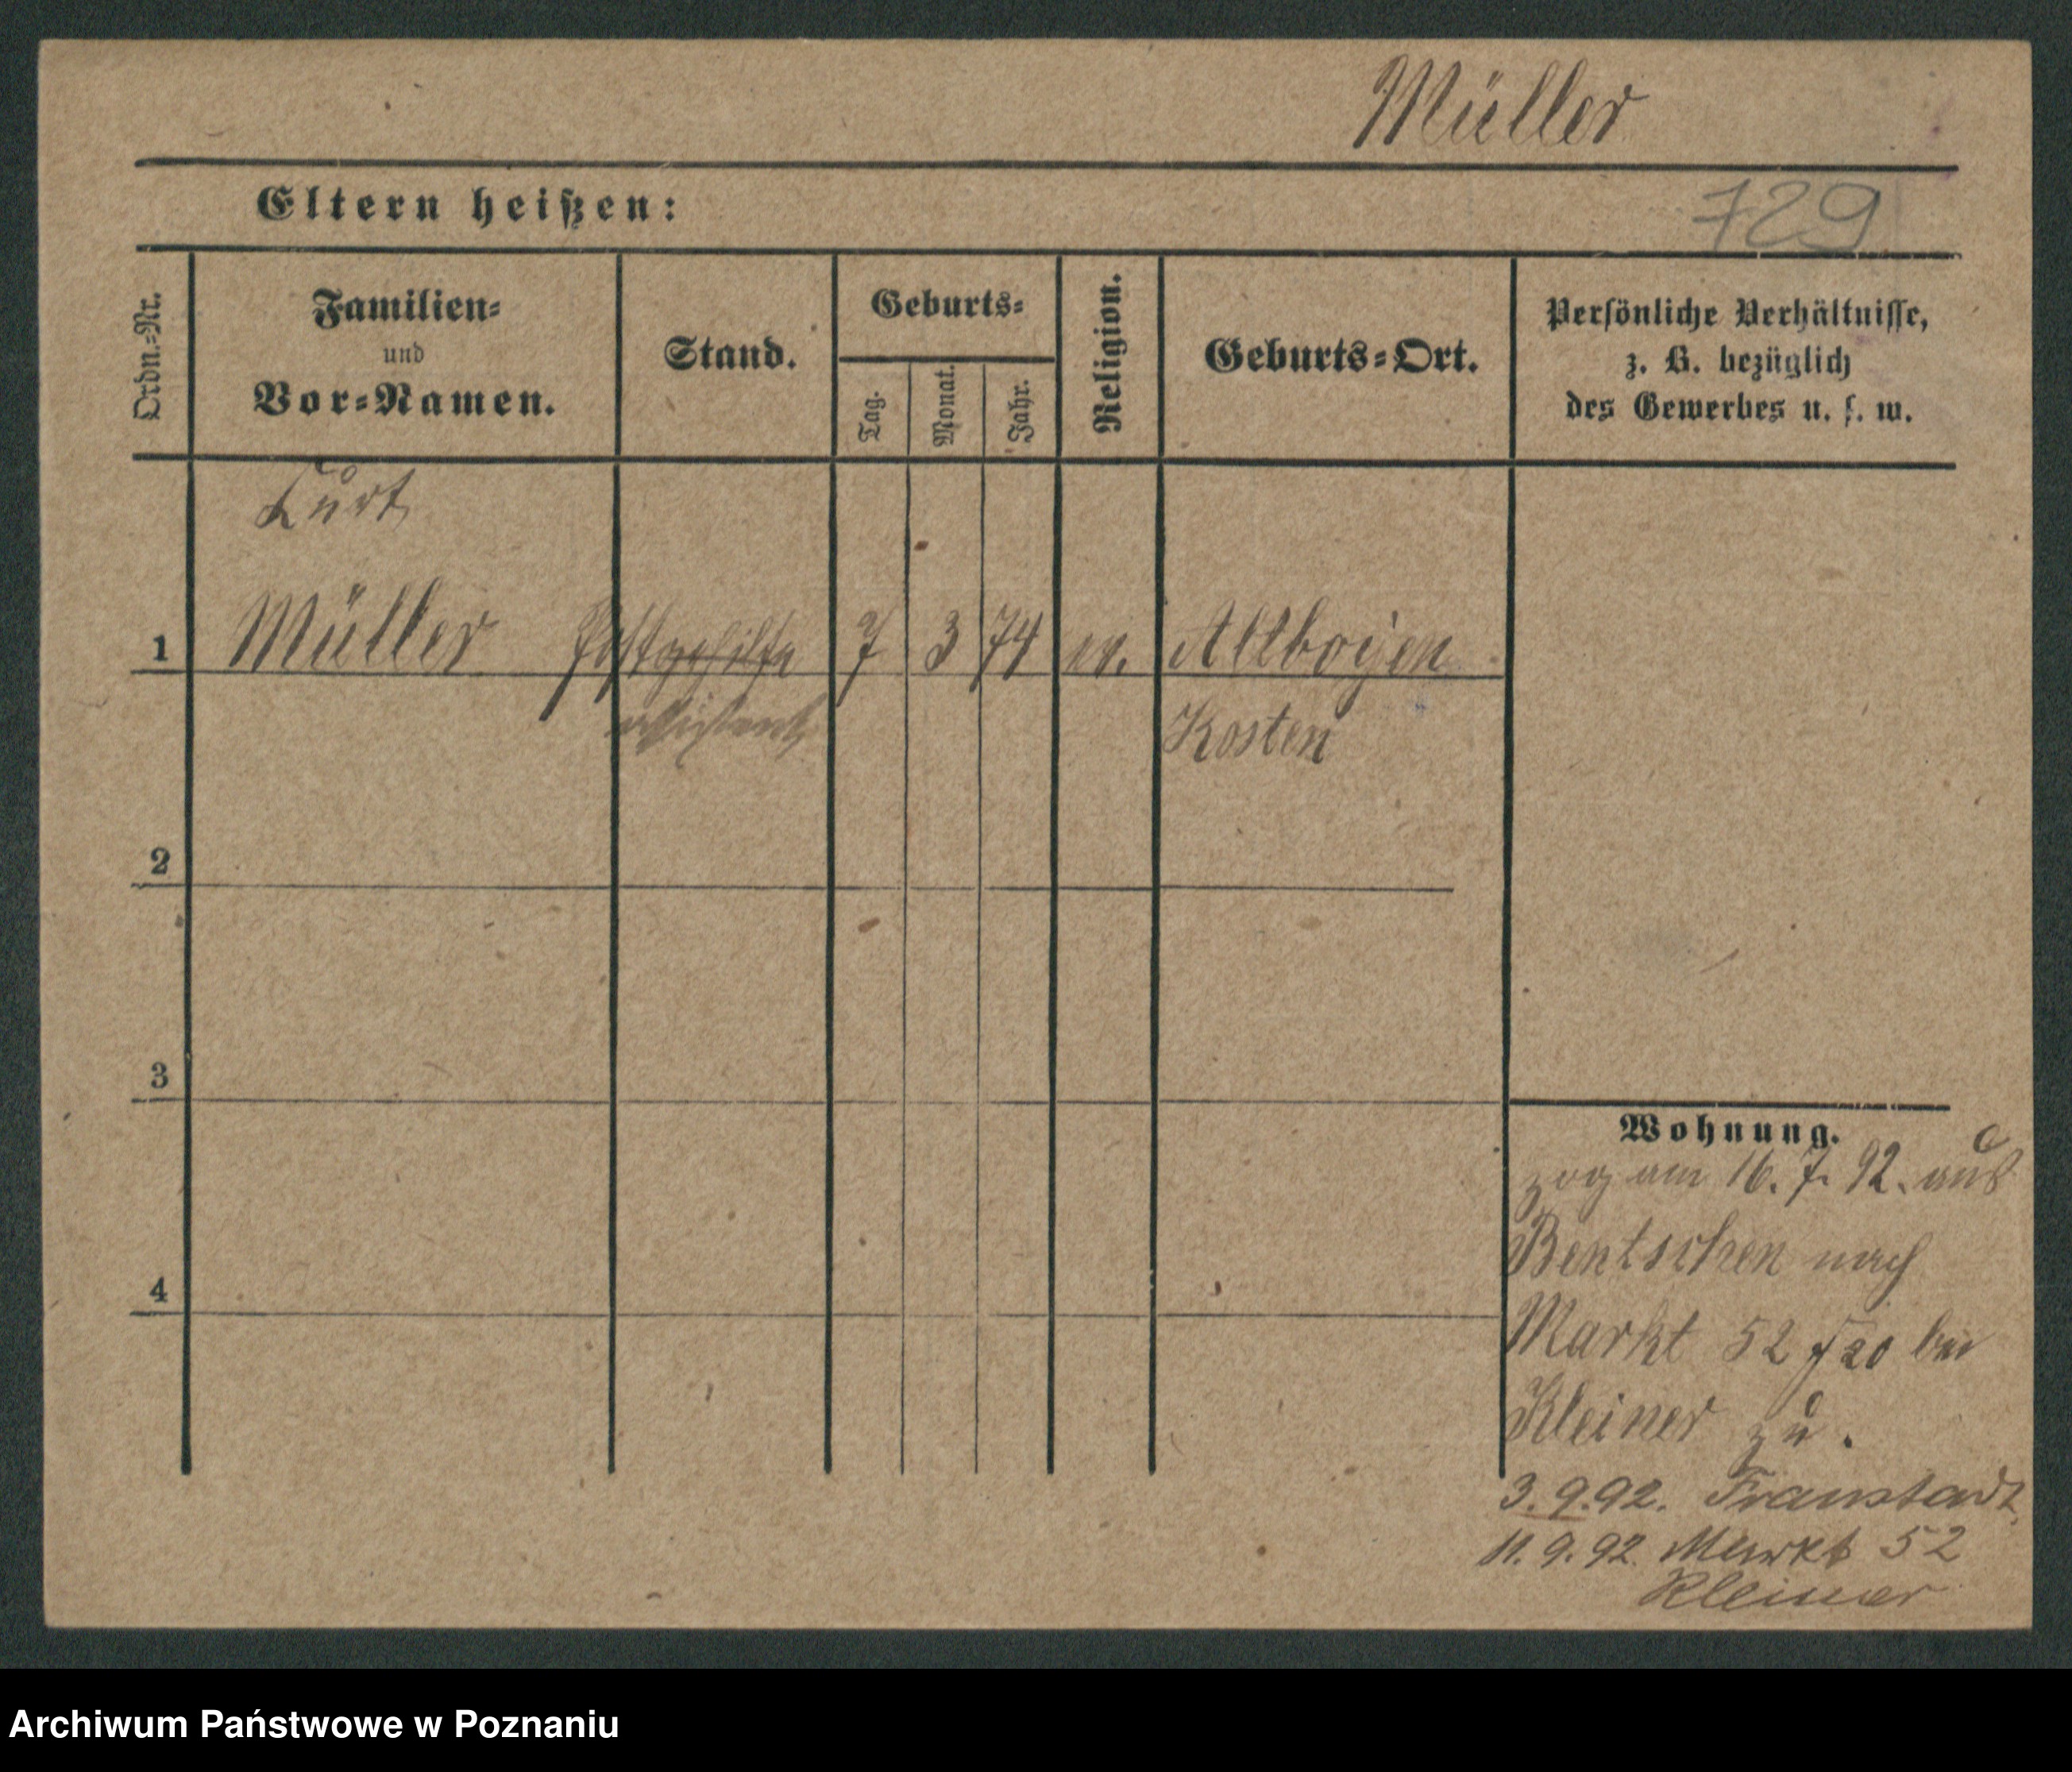 Müller
Eltern heißen:
729
Ordn.-Nr.
Familien-
und
Vor-Namen.
Stand.
Geburts-
Tag.
Monat.
Jahr.
Religion.
Geburts-Ort.
Persönliche Verhältnisse,
z. B. bezüglich
des Gewerbes u. s. w.
Kurt
1 Müller Postgehilfe 7 3 74 ev. Altboyen
assistent Kosten
2
3
4
Wohnung.
zog am 16. 7. 92. aus
Bentschen nach
Markt 52 bei
Kleiner zu.
3. 9. 92. Fraustadt
11. 9. 92. Markt 52
Kleiner
Archiwum Państwowe w Poznaniu